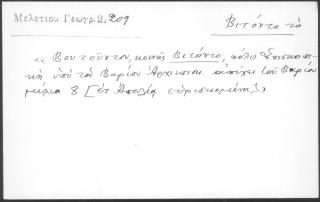 Μελετίου Γεωγρ. 2, 209
Βιτόντο το
« Βουτοῦντον, κοινῶς Βιτόντο, πόλις Ἐπισκοπι-
κὴ ὑπὸ τὸν Βαρίου Ἀρχιεπισκ. ἀπέχει τοῦ Βαρίου
μίλια 8 [ἐν Ἀπουλίᾳ εὑρισκομένη]»